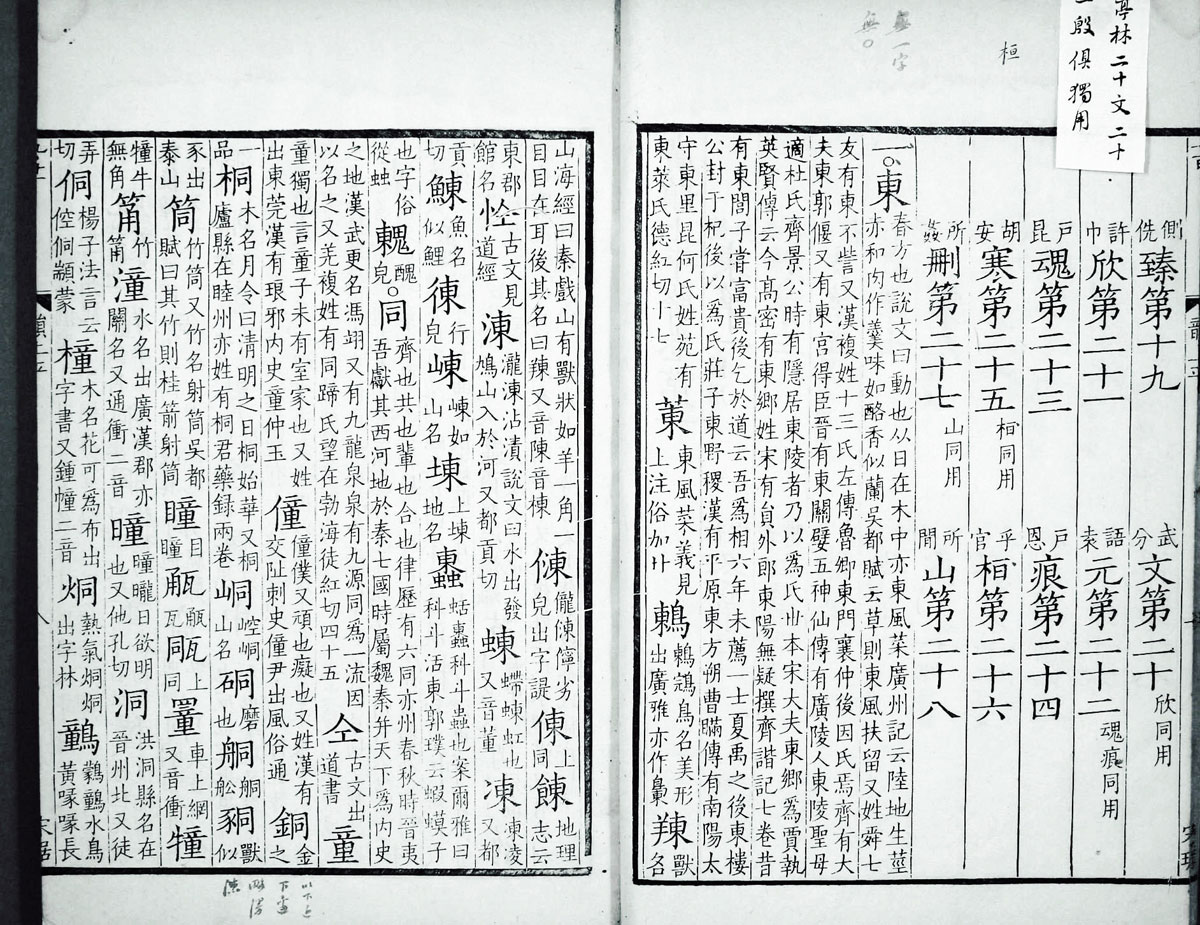 亭林二十文二十
一殷俱獨用
桓
無一字
無○
側詵臻第十九 武分文第二十欣同用
許巾欣第二十一 語袁元第二十二魂痕同用
戶昆魂第二十三 戶恩痕第二十四
胡安寒第二十五桓同用 乎官桓第二十六
所姦刪第二十七山同用 所閒山第二十八
一○東春方也說文曰動也从日在木中亦東風菜廣州記云陸地生莖赤和肉作羹味如酪香似蘭吳都賦云草則東風扶留又姓舜七
友有東不訾又漢複姓十三氏左傳魯卿東門襄仲後因氏焉齊有大夫東郭偃又有東宮得臣晉有東關嬖五神仙傳有廣陵人東陵聖母
適杜氏齊景公時有隱居東陵者乃以爲氏世本宋大夫東鄉爲賈執英賢傳云今高密有東鄉姓宋有員外郎東陽無疑撰齊諧記七卷昔
有東閭子嘗富貴後乞於道云吾爲相六年未薦一士夏禹之後東樓公封于杞後以爲氏莊子東野稷漢有平原東方朔曹瞞傳有南陽太
守東里昆何氏姓苑有東萊氏德紅切十七 菄東風菜義見上注俗加艹 鶇鶇鵍鳥名美形出廣雅亦作𪂝 䍶獸名
山海經曰秦戲山有獸狀如羊一角一目目在耳後其名曰䍶又音陳音棟 𠍀儱倲儜劣皃出字諟 倲上同 餗地理志云
東郡館名 㤏古文見道經 涷瀧涷沾漬說文曰水出發鳩山入於河又都貢切 蝀螮蝀虹也又音董 凍凍凌又都
貢切 鯟魚名似鯉 徚行皃 崠崠如山名 埬上埬地名 𧓕蛞𧓕科斗蟲也案爾雅曰科斗活東郭璞云蝦蟆子
也字俗從䖵 𩳣醜皃○ 同齊也共也輩也合也律歷有六同亦州春秋時晉夷吾獻其西河地於秦七國時屬魏秦并天下爲內史
之地漢武更名馮翊又有九龍泉泉有九源同爲一流因以名之又羌複姓有同蹄氏望在勃海徒紅切四十五 仝古文出道書 童
童獨也言童子未有室家也又姓出東莞漢有琅邪內史童仲玉 僮僮僕又頑也癡也又姓漢有交阯刺史僮尹出風俗通 銅金之
一品 桐木名月令曰清明之日桐始華又桐廬縣在睦州亦姓有桐君藥錄兩卷 峒崆峒山名 硐磨也 舸舸舩 㹇獸似
豕出泰山 筒竹筒又竹名射筒吳都賦曰其竹則桂箭射筒 瞳目瞳 㼧㼧瓦 𤭁上同 罿車上網又音衝 犝
犝牛無角 筩竹筩 潼水名出廣漢郡亦關名又通衝二音 曈曈曨日欲明也又他孔切 洞洪洞縣名在晉州北又徒
弄切 侗楊子法言云倥侗顓蒙 橦木名花可爲布出字書又鍾幢二音 烔熱氣烔烔出字林 鷾鸏鶴水鳥黃喙喙長